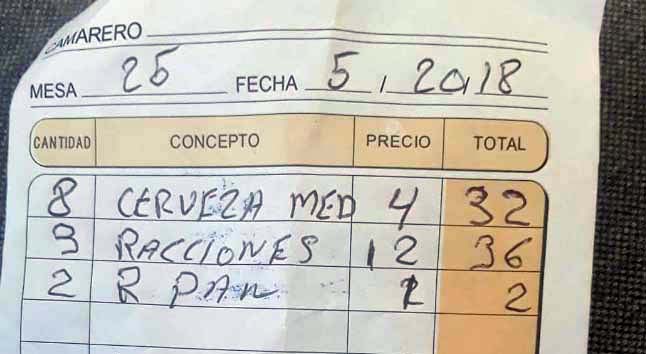 CAMARERO
MESA 25 FECHA 5 / 2018
CANTIDAD CONCEPTO PRECIO TOTAL
8 CERVEZA MED 4 32
3 RACCIONES 12 36
2 R PAN 1 2